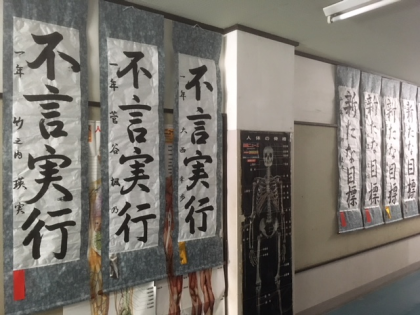 不言実行
一年 竹之内 瑛実
不言実行
一年 菅谷
不言実行
一年
人体の骨格
新たな目標
新たな目標
新たな目標
新たな目標